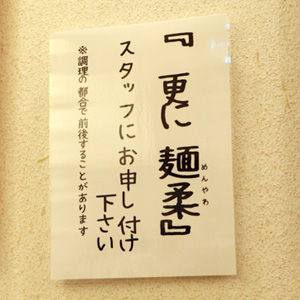 『更に麺柔』
めんやわ
スタッフにお申し付け
下さい
※調理の都合で前後することがあります